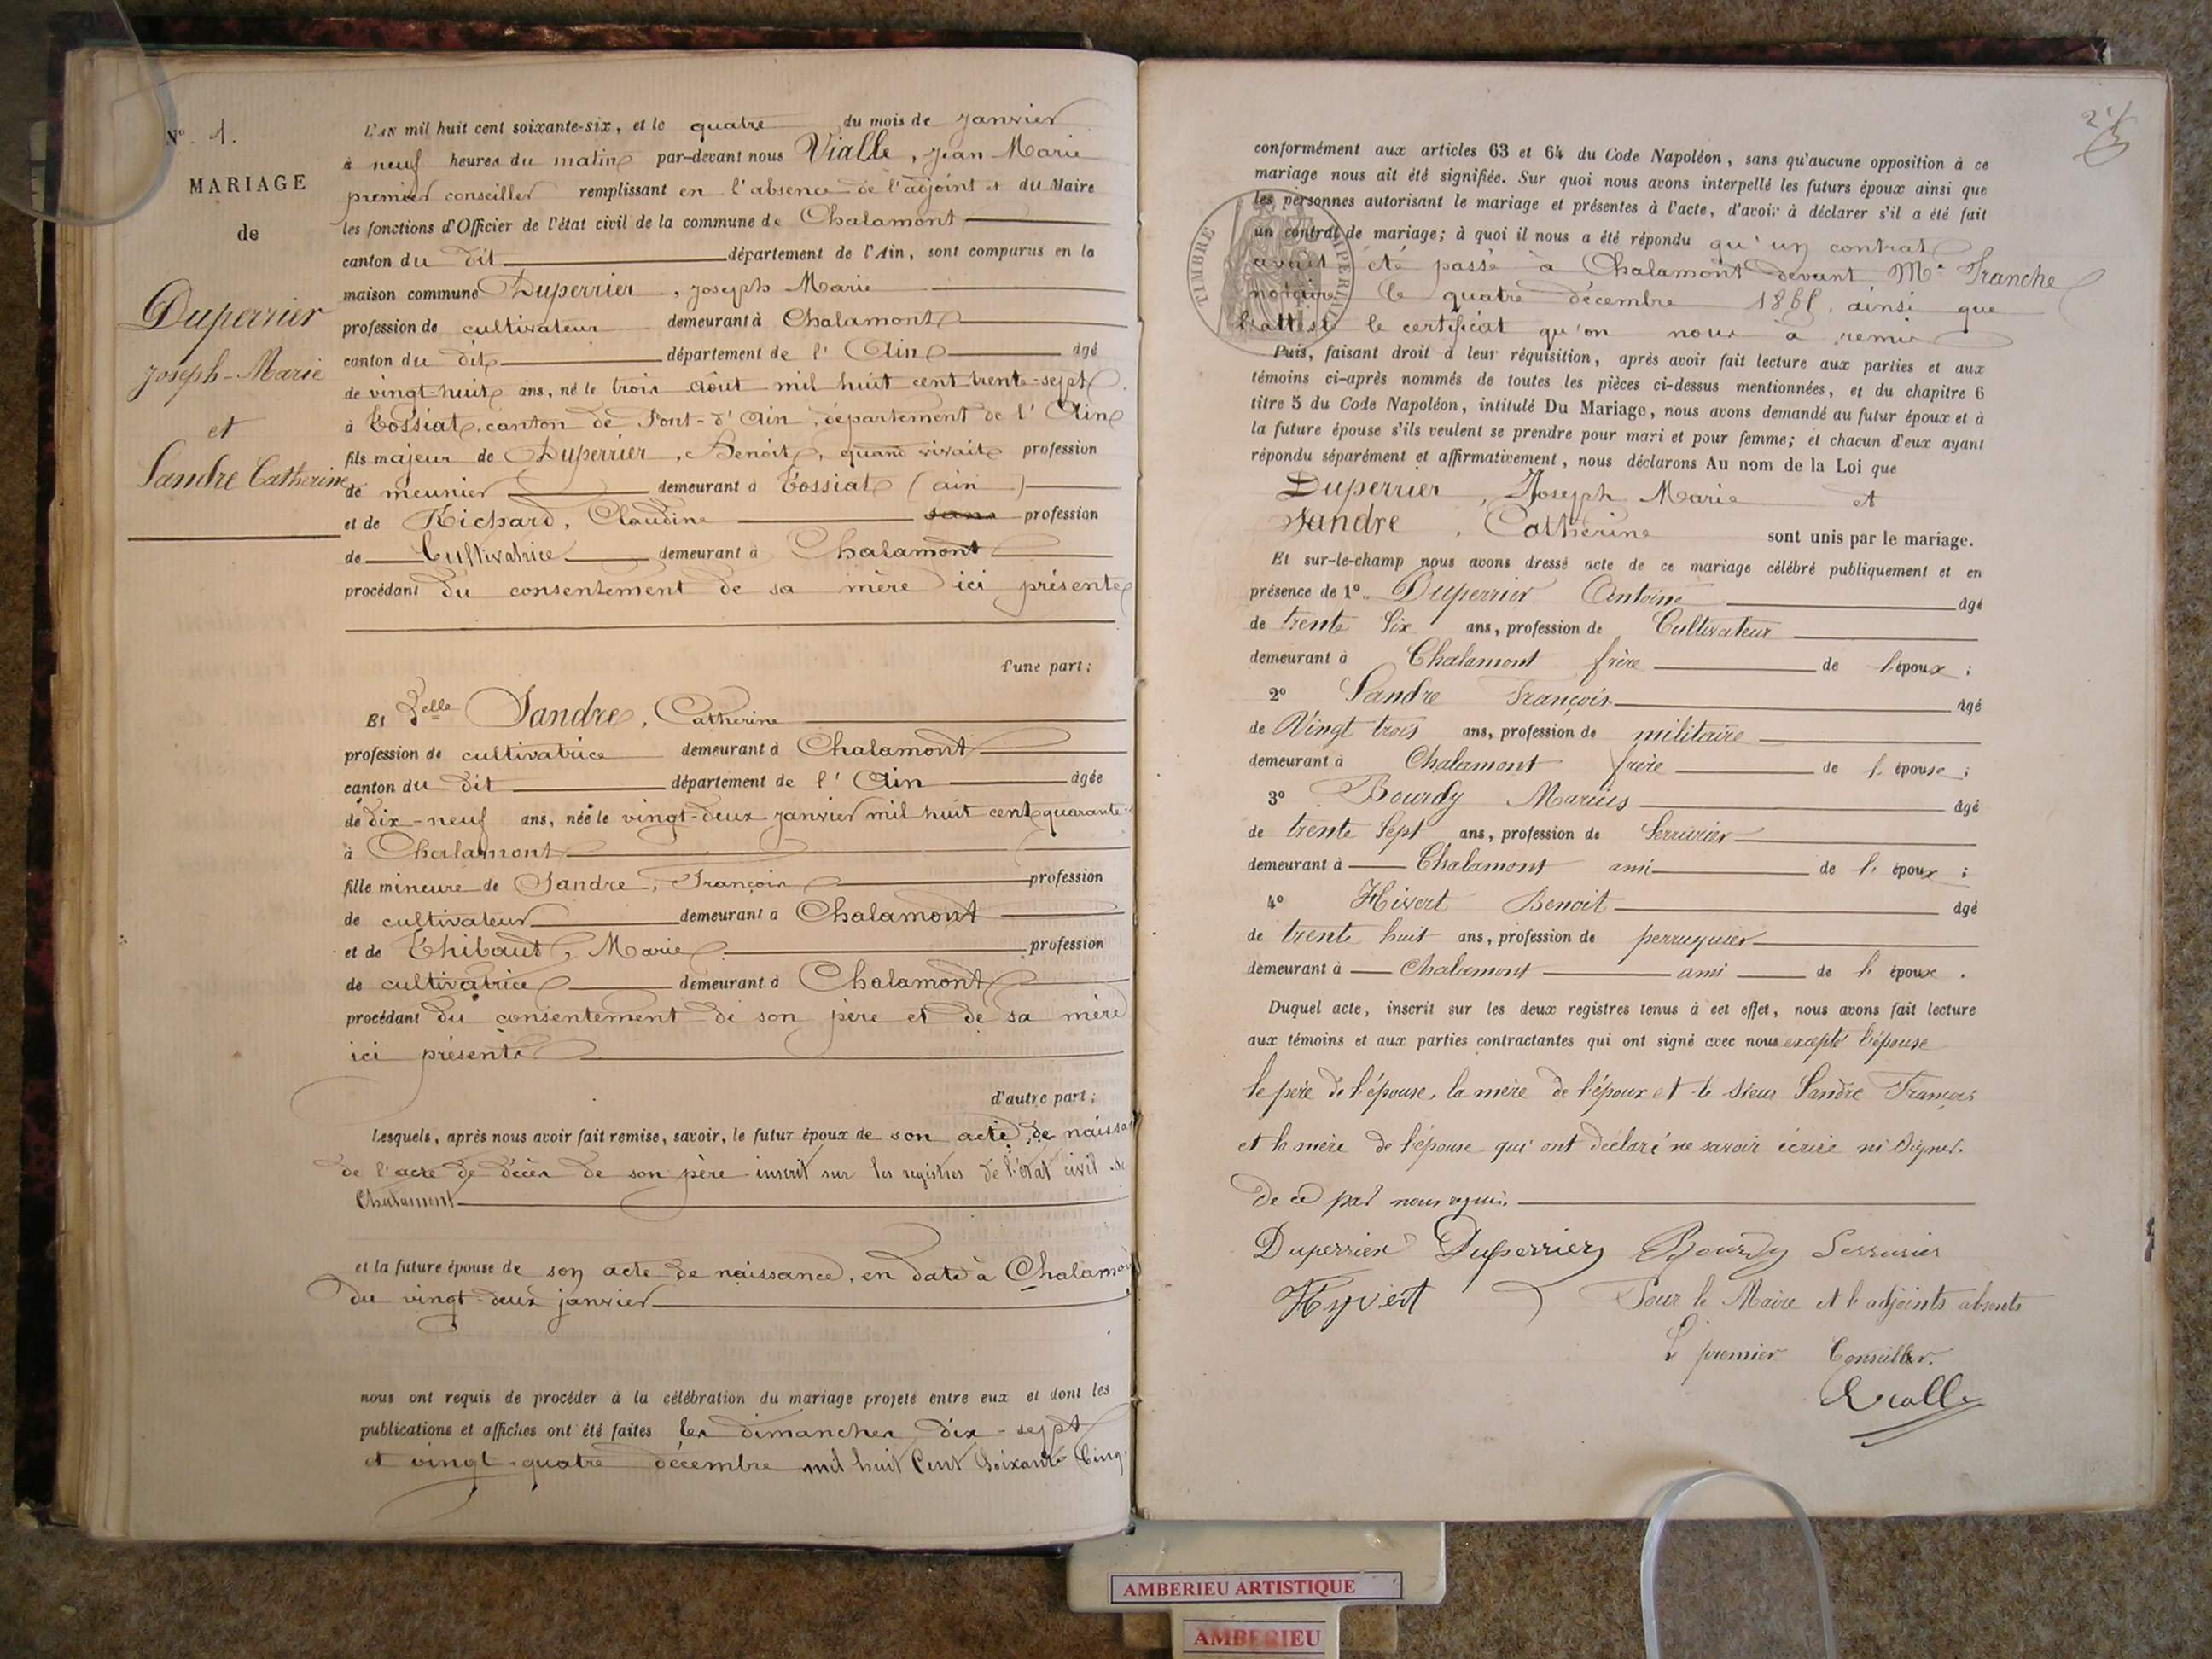 N° 1.
MARIAGE
de
Duperrier
Joseph-Marie
et
Sandre Catherine
L'AN mil huit cent soixante-six, et le quatre du mois de janvier
à neuf heures du matin par-devant nous Vialle, Jean Marie
premier conseiller remplissant en l'absence de l'adjoint et du Maire
les fonctions d'Officier de l'état civil de la commune de Chalamont
canton du dit département de l'Ain, sont comparus en la
maison commune Duperrier, Joseph Marie
profession de cultivateur demeurant à Chalamont
canton du dit département de l'Ain âgé
de vingt-huit ans, né le trois août mil huit cent trente-sept
à Tossiat, canton de Pont-d'Ain, département de l'Ain
fils majeur de Duperrier, Benoit, quand vivait profession
de meunier demeurant à Tossiat (ain)
et de Richard, Claudine sans profession
de Cultivatrice demeurant à Chalamont
procédant du consentement de sa mère ici présente
d'une part;
Et Delle Sandre, Catherine
profession de cultivatrice demeurant à Chalamont
canton du dit département de l'Ain âgée
de dix-neuf ans, née le vingt-deux janvier mil huit cent quarante-
à Chalamont
fille mineure de Sandre, François profession
de cultivateur demeurant à Chalamont
et de Thibaut, Marie profession
de cultivatrice demeurant à Chalamont
procédant du consentement de son père et de sa mère
ici présents
d'autre part;
Lesquels, après nous avoir fait remise, savoir, le futur époux de son acte de naissa
de l'acte de décès de son père inscrit sur les registres de l'état civil de
Chalamont
et la future épouse de son acte de naissance, en date à Chalamont
du vingt-deux janvier
nous ont requis de procéder à la célébration du mariage projeté entre eux et dont les
publications et affiches ont été faites les dimanches dix-sept
et vingt-quatre décembre mil huit Cent Soixante Cinq.
conformément aux articles 63 et 64 du Code Napoléon, sans qu'aucune opposition à ce
mariage nous ait été signifiée. Sur quoi nous avons interpellé les futurs époux ainsi que
les personnes autorisant le mariage et présentes à l'acte, d'avoir à déclarer s'il a été fait
un contrat de mariage; à quoi il nous a été répondu qu'un contrat
avait été passé à Chalamont devant Me Tranche
notaire le quatre décembre ainsi que
l'atteste le certificat qu'on nous a remis
TIMBRE IMPERIAL
Puis, faisant droit à leur réquisition, après avoir fait lecture aux parties et aux
témoins ci-après nommés de toutes les pièces ci-dessus mentionnées, et du chapitre 6
titre 5 du Code Napoléon, intitulé Du Mariage, nous avons demandé au futur époux et à
la future épouse s'ils veulent se prendre pour mari et pour femme; et chacun d'eux ayant
répondu séparément et affirmativement, nous déclarons Au nom de la Loi que
Duperrier, Joseph Marie et
Sandre, Catherine sont unis par le mariage.
Et sur-le-champ nous avons dressé acte de ce mariage célébré publiquement et en
présence de 1° Duperrier Antoine âgé
de trente Six ans, profession de Cultivateur
demeurant à Chalamont frère de l'époux;
2° Sandre François âgé
de Vingt trois ans, profession de militaire
demeurant à Chalamont frère de l'épouse;
3° Bourdy Marius âgé
de trente Sept ans, profession de Serrurier
demeurant à Chalamont ami de l'époux;
4° Hivert Benoit âgé
de trente huit ans, profession de perruquier
demeurant à Chalamont ami de l'époux.
Duquel acte, inscrit sur les deux registres tenus à cet effet, nous avons fait lecture
aux témoins et aux parties contractantes qui ont signé avec nous excepté l'épouse
le père de l'épouse, la mère de l'époux et le sieur Sandre François
et la mère de l'épouse qui ont déclaré ne savoir écrire ni Signer.
de ce par nous requis.
Duperrier Duperrier Bourdy Serrurier
Hyvert Pour le Maire et l'adjoints absents
Le premier Conseiller.
Vialle
AMBERIEU ARTISTIQUE
AMBERIEU